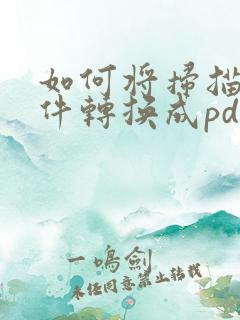 如何将掃描
件轉換成pd
一鳴劍
未经同意禁止转载